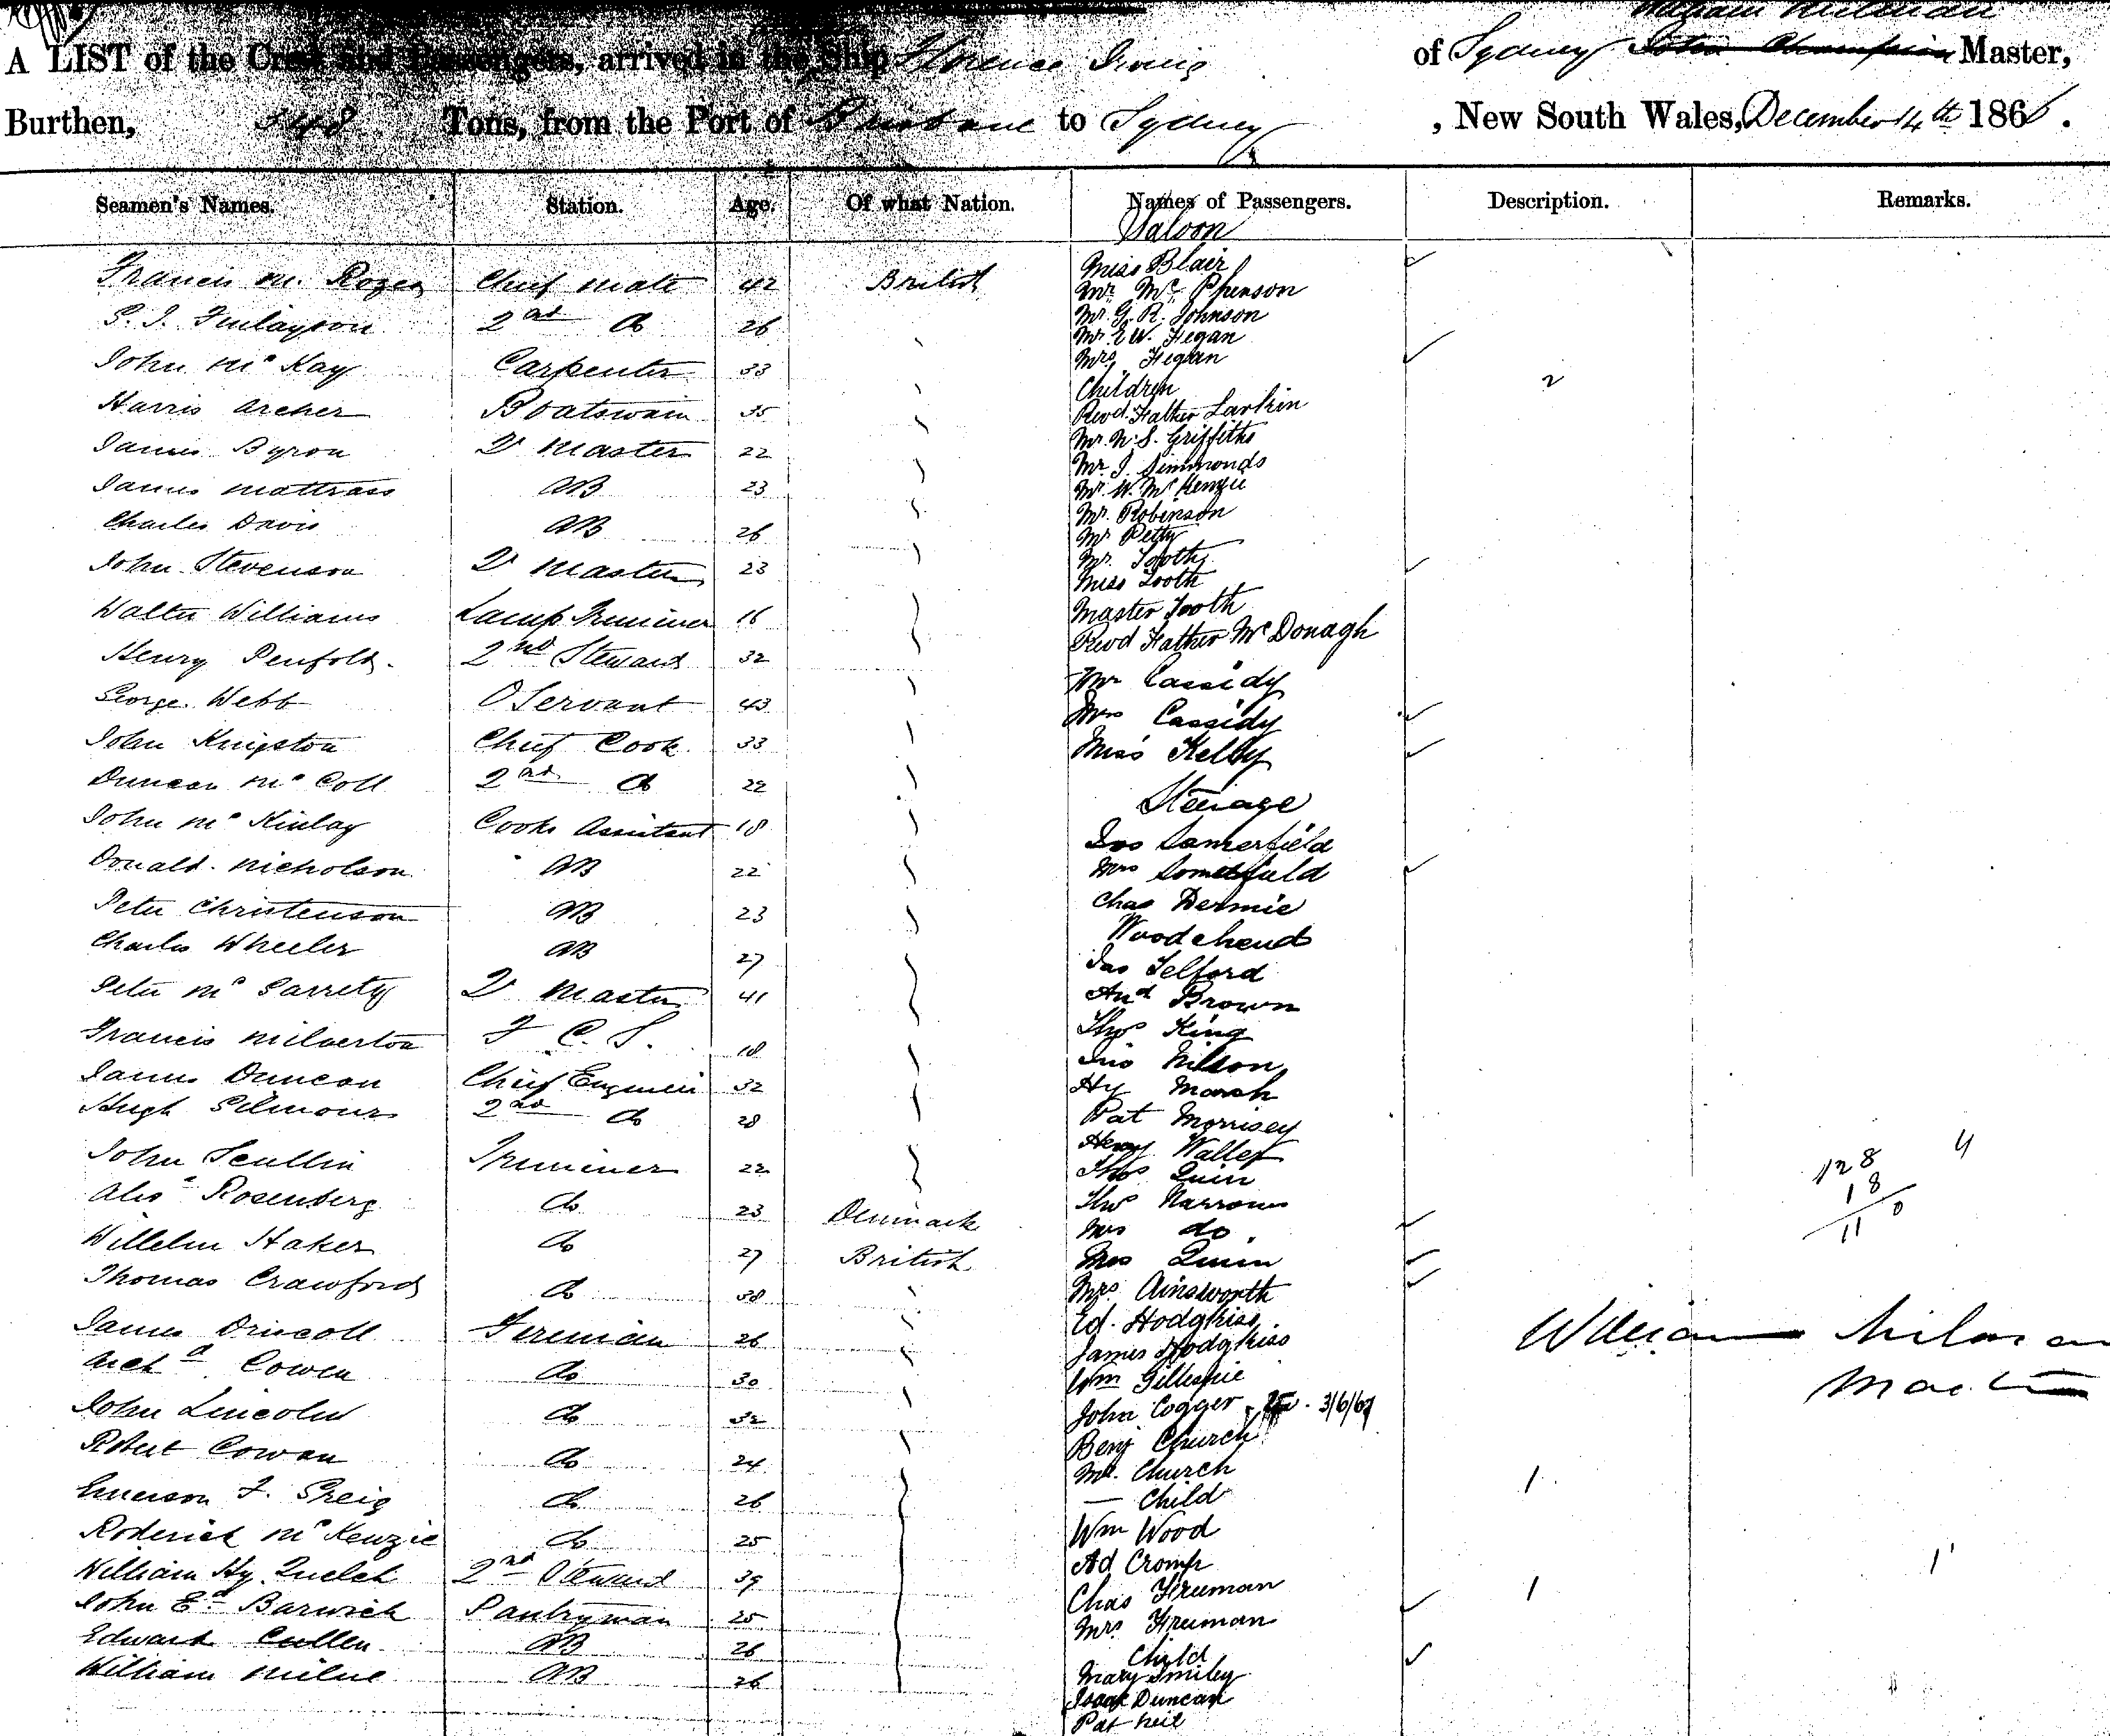 A LIST of the Crew and Passengers, arrived in the Ship Florence Irving of Sydney William Master,
Burthen, 348 Tons, from the Port of Brisbane to Sydney, New South Wales, December 14th 1866.
Seamen's Names. Station. Age. Of what Nation. Names of Passengers. Description. Remarks.
Saloon
Francis M. Chief Mate 42 British
Finlayson 2nd do 26
John McKay Carpenter 33
Harris Archer Boatswain 35
James Byron Q Master 22
James Mattrass AB 23
Charles Davis AB 26
John Stevenson Q Master 23
Walter Williams Lamp Trimmer 16
Henry Penfold 2nd Steward 32
George Webb O Servant 43
John Kingston Chief Cook 33
Duncan McColl 2nd do 22
John McKinlay Cooks Assistant 18
Donald Nicholson AB 22
Peter Christenson AB 23
Charles Wheeler AB 27
Peter McGarrety Q Master 41
Francis Milverton F C S. 18
James Duncan Chief Engineer 32
Hugh Gilmour 2nd do 28
John Scullin Trimmer 22
Rosenberg do 23 Denmark
Willelm Haker do 27 British
Thomas Crawford do 38
James Driscoll Fireman 26
Archd Cowen do 30
John Lincoln do 32
Robert Cowan do 24
Emerson F. Greig do 26
Roderick McKenzie do 25
William Hy Quelch 2nd Steward 39
John Ed Barwick Pantryman 25
Edward Cullen AB 26
William Milne AB 26
Miss Blair
Mr McPherson
Mr G. R. Johnson
Mr E W. Hegan
Mrs Hegan
Children 2
Revd Father Larkin
Mr N. S. Griffiths
Mr J. Simmonds
Mr W. McKenzie
Mr. Robinson
Mr Petty
Mr. Tooth
Miss Tooth
Master Tooth
Revd Father McDonagh
Mr Cassidy
Mrs Cassidy
Miss Kelly
Steerage
Somerfield
Mrs Somerfield
Chas Dermie
Woodehend
Jas Telford
And Brown
Thos King
Jno Nilson
Hy Marsh
Pat Morrisey
Henry Waller
Thos Quin
Thos Narrows
Mrs do
Mrs Quinn
Mrs Ainsworth
Ed. Hodgkiss
James Hodgkiss
Wm Gillespie
John Cogger 3/6/67
Benj Church
Mrs. Church
— Child 1
Wm Wood
Ad Cromp
Chas Freeman
Mrs Freeman
Child 1
Mary Smiley
Isaac Duncan
Pat Neil
128 4
18
110
William
Master
1